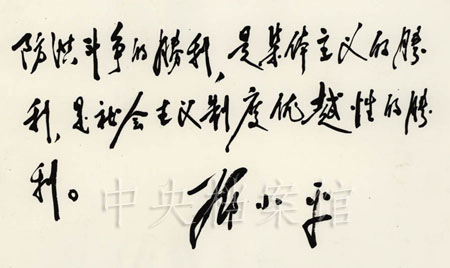 防洪斗争的勝利，是集体主义的勝
利，是社会主义制度优越性的勝
利。
邓小平
中央档案馆